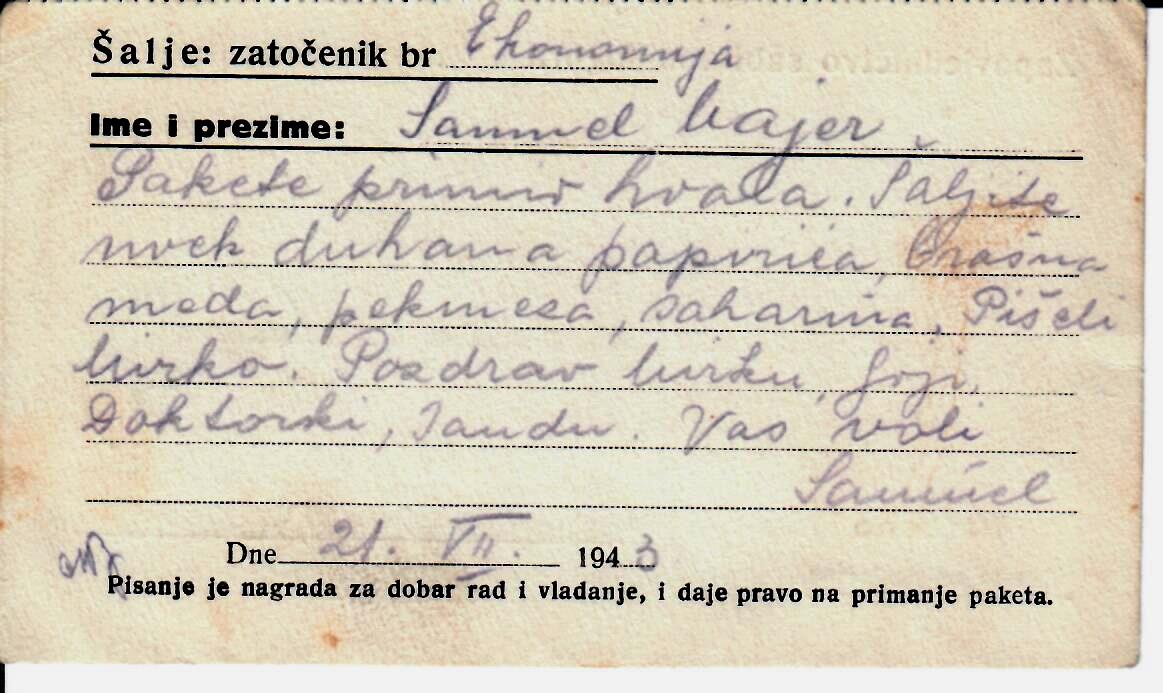 Šalje: zatočenik br Ekonomija
Ime i prezime: Samuel Majer
Pakete primio hvala. Šaljite
uvek duhana papirića, Brašna
meda, pekmeza, saharina. Piše li
Mirko. Pozdrav Mirku,
Doktorski, Vas voli
Samuel
Dne 21. VII. 1943
Pisanje je nagrada za dobar rad i vladanje, i daje pravo na primanje paketa.